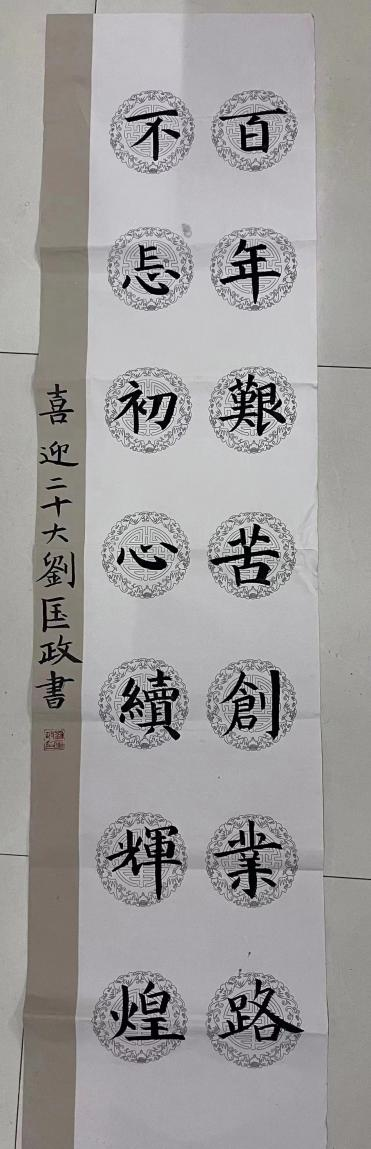 百年艱苦創業路
不忘初心續輝煌
喜迎二十大劉匡政書